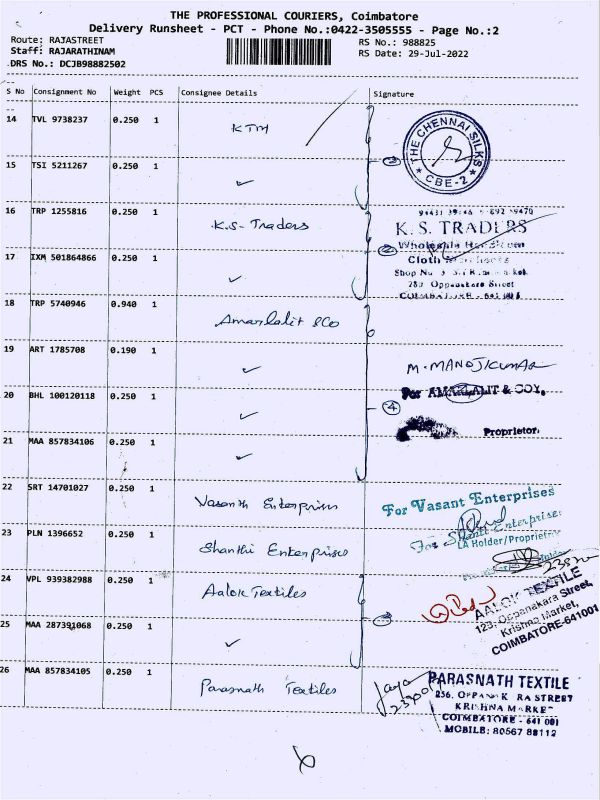 THE PROFESSIONAL COURIERS, Coimbatore
Delivery Runsheet - PCT - Phone No.:0422-3505555 - Page No.:2
Route: RAJASTREET
Staff: RAJARATHINAM
DRS No.: DCJB98882502
RS No.: 988825
RS Date: 29-Jul-2022
S No Consignment No Weight PCS Consignee Details Signature
14 TVL 9738237 0.250 1 KTM
15 TSI 5211267 0.250 1 ✓
THE CHENNAI SILKS
★ CBE-2 ★
16 TRP 1255816 0.250 1 K.S- Traders
17 IXM 501864866 0.250 1 ✓
K. S. TRADERS
Wholesale
Cloth
Shop No
Oppanakara Street
COIMBATORE - 641 001
18 TRP 5740946 0.940 1 Amarlalit & Co
19 ART 1785708 0.190 1 ✓
20 BHL 100120118 0.250 1 ✓
21 MAA 857834106 0.250 1 ✓
4
M. MANOJKUMAR
For AMARLALIT & COY,
Proprietor
22 SRT 14701027 0.250 1 Vasanth Enterprises
For Vasant Enterprises
23 PLN 1396652 0.250 1 Shanthi Enterprises
For Enterprises
LA Holder/Proprietor
24 VPL 939382988 0.250 1 Aalok Textiles
25 MAA 287391068 0.250 1 ✓
AALOK TEXTILE
123, Oppanakara Street,
Krishna Market,
COIMBATORE-641001
26 MAA 857834105 0.250 1 Parasnath Textiles
PARASNATH TEXTILE
256, OPPANAKARA STREET
KRISHNA MARKET
COIMBATORE - 641 001
MOBILE: 80567 88112